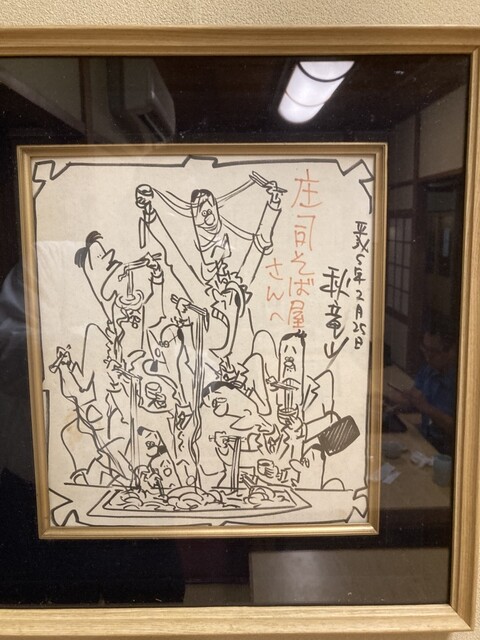 庄司そば屋
さんへ
平成5年2月25日
秋竜山